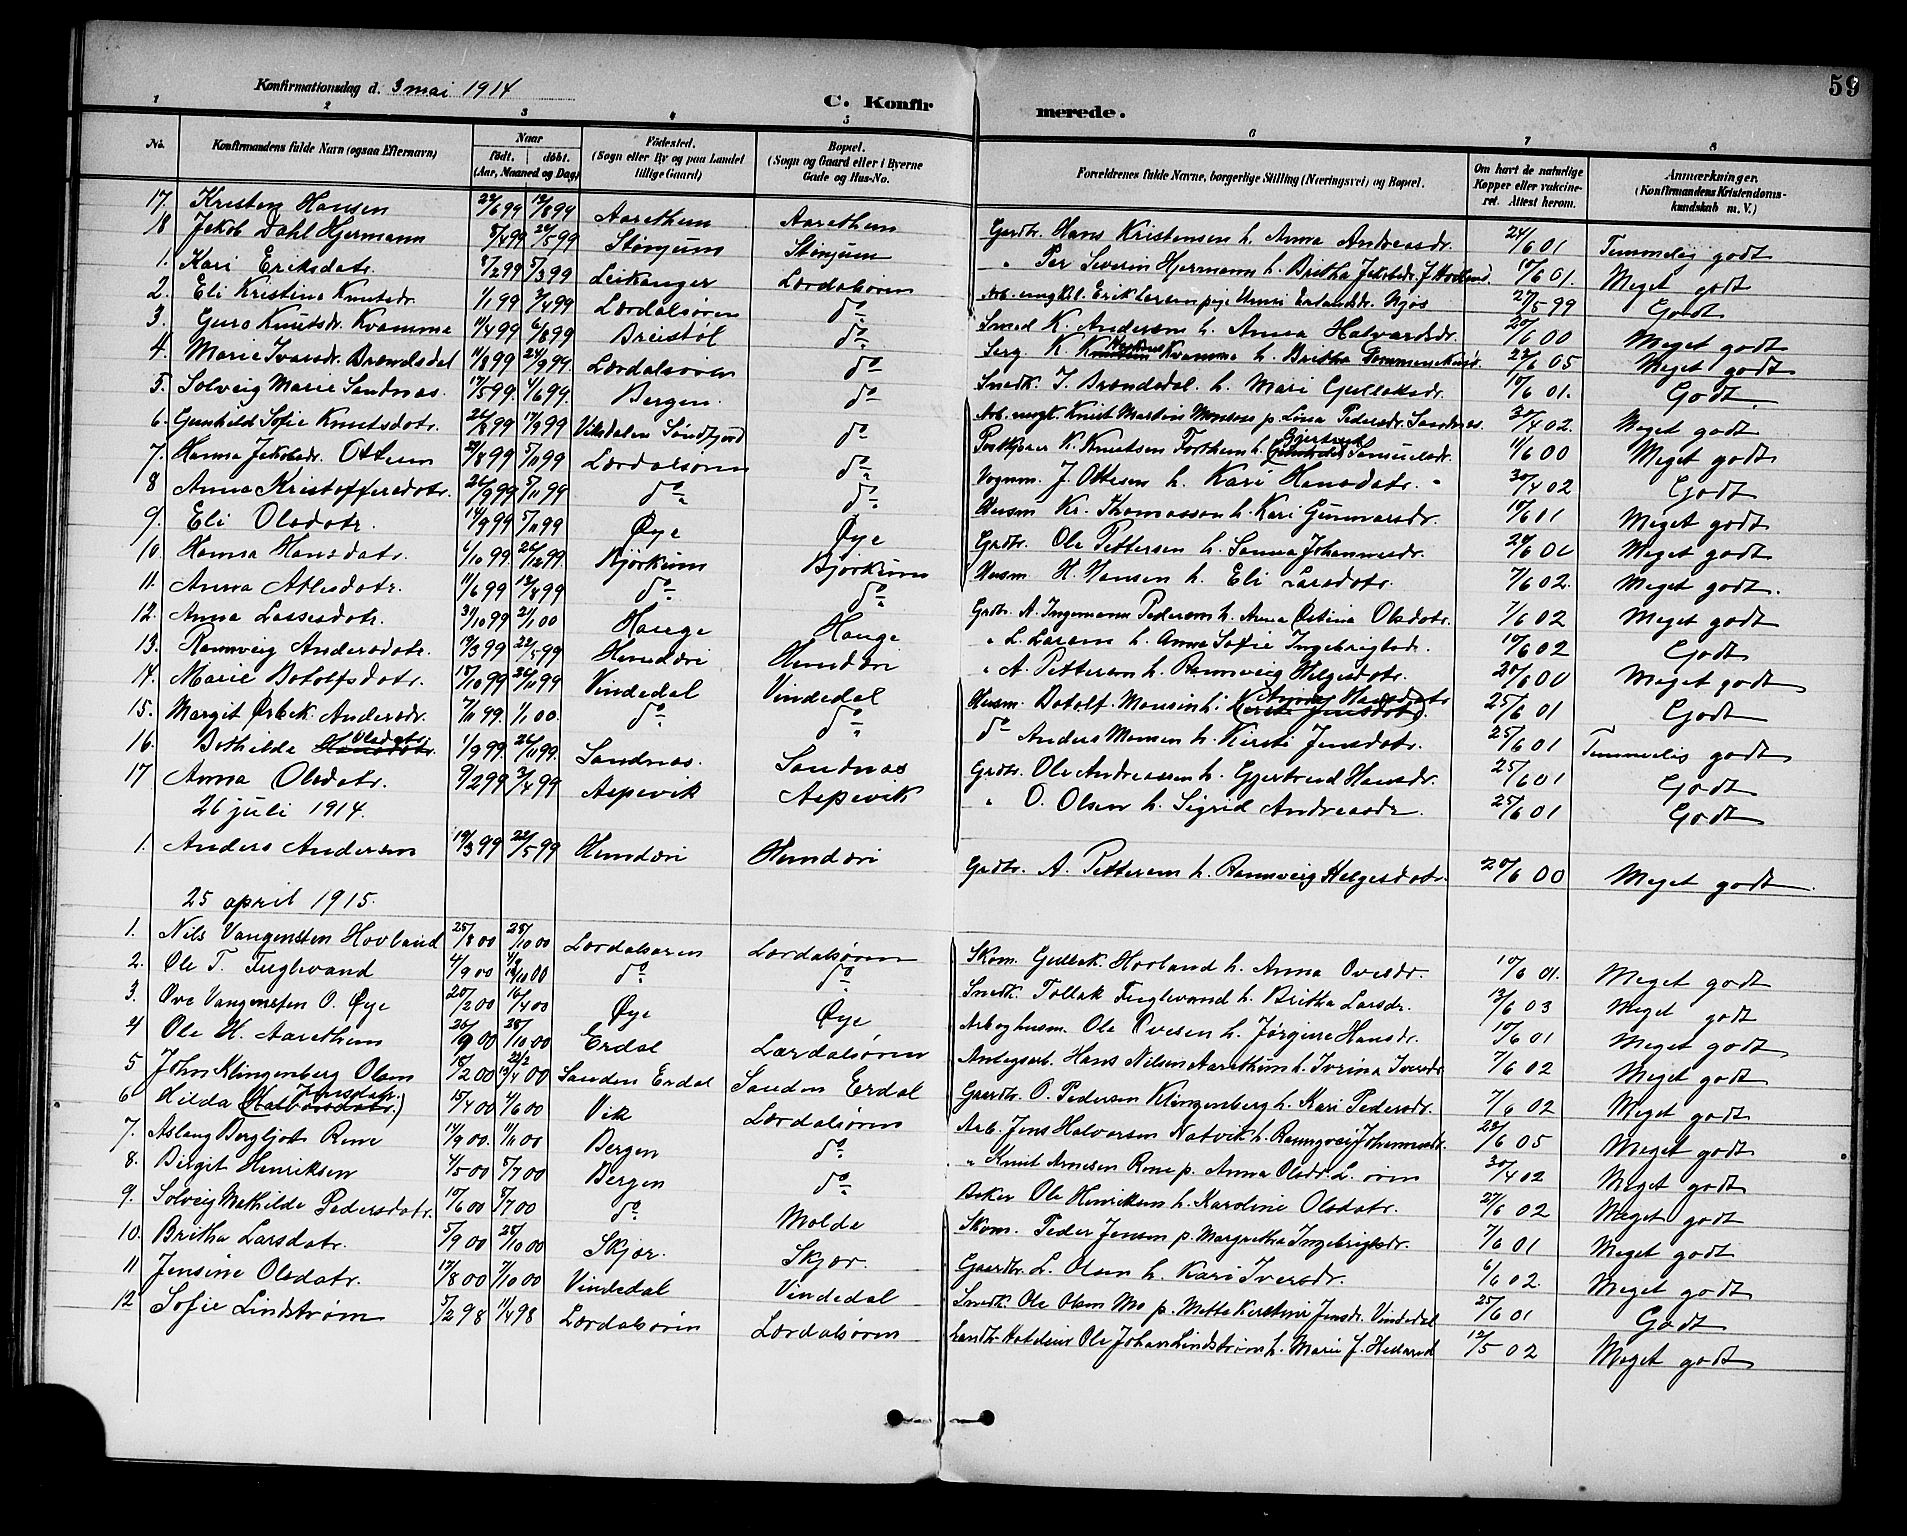 59
Konfirmationsdag d. 3 mai 1914
C. Konfirmerede.
1 2 3 4 5 6 7 8
No. Konfirmandens fulde Navn (ogsaa Efternavn) Naar født. døbt. (Aar, Maaned og Dag) Fødested. (Sogn eller By og paa Landet tillige Gaard) Bopæl. (Sogn og Gaard eller i Byerne Gade og Hus-No. Forældrenes fulde Navne, borgerlige Stilling (Næringsvei) og Bopæl. Om havt de naturlige Kopper eller vakcineret. Attest herom. Anmærkninger. (Konfirmandens Kristendomskundskab m. V.)
17. Kristen Hansen 22/6 99 13/8 99 Aarethun Aarethun Gardbr. Hans Kristensen h. Anna Andreasdr. 24/6 01 Temmelig godt
18 Jakob Dahl Hjermann 8/4 99 28/5 99 Stønjum Stønjum " Per Severin Hjermann h. Britha Jakobsdr. f. Hovland 10/6 01. Meget godt
1. Kari Eriksdatr. 8/2 99 5/3 99 Leikanger Lærdalsøren Arb. ungkl. Erik Larsen pige Unni Erlandsdr. Njøs 27/5 99 Godt
2. Eli Kristina Knutsdr. 1/1 99 3/4 99 Lærdalsøren do Smed K. Andersen h. Anna Halvardsdr. 20/6 00 Meget godt
3. Guro Knutsdr. Kvamma 11/4 99 6/8 99 Breistøl do Serg. K. Kvamme h. Britha 22/6 05 Meget godt
4. Marie Ivarsdr. Brændsdal 11/8 99 24/9 99 Lærdalsøren do Snedk. I. Brændsdal h. Mari Gulleiksdr. 10/6 01. Godt.
5. Solveig Marie Sandnæs. 17/5 99. 4/6 99 Bergen. do Arb. ungk. Knut Martin Monsen p. Lina Pedersdr. Sandnæs. 30/4 02. Meget godt
6. Gunhild Sofie Knutsdatr. 26/8 99 17/9 99 Viksdalen Søndfjord do Postkjører K. Knutsen Forthun h. Gjertrud Samuelsdr. 11/6 00 Meget godt
7. Hanna Jakobsdr. Ottesen 21/8 99 5/11 99 Lærdalsøren do Vognm. J. Ottesen h. Kari Hansdatr. " 30/4 02 Godt
8 Anna Kristoffersdatr. 26/9 99 5/11 99 do do Husm Kr. Thomassen h. Kari Gunnarsdr. 10/6 01 Meget godt
9. Eli Olsdatr. 14/9 99 5/11 99 Øye Øye Grdbr. Ole Pettersen h. Sanna Johannesdr. 24/6 01 Meget godt
10. Hanna Hansdatr. 6/10 99 26/12 99 Bjørkum Bjørkum Husm. H. Hansen h. Eli Larsdatr. 7/6 02. Meget godt.
11. Anna Atlesdatr. 11/6 99 13/8 99 do do Grdbr. A. Ingemann Pedersen h. Anna Østina Olsdatr. 7/6 02 Meget godt
12. Anna Lassesdatr. 31/10 99 21/1 00 Hauge Hauge " L. Larsen h. Anna Sofie Ingebrigtsdr. 10/6 02 Godt
13. Rannveig Andersdatr. 19/3 99 22/5 99 Hundæri Hundæri " A. Pettersen h. Rannveig Helgesdatr. 20/6 00 Meget godt
14. Marie Botolfsdatr. 18/10 99 26/11 99 Vindedal Vindedal Husm. Botolf Monsen h. Hansdatr (Kirsti Jensdatr). 25/6 01 Godt
15. Margit Ørbek Andersdr. 7/11 99. 1/1 00. do do do Anders Monsen h. Kirsti Jensdatr. 25/6 01 Temmelig godt
16. Bothilda Olsdatr Hansdatr. 1/9 99. 26/11 99. Sandnæs. Sandnæs Grdbr. Ole Andreassen h. Gjertrud Hansdr. 25/6 01 Godt
17 Anna Olsdatr. 9/2 99 3/4 99 Aspevik Aspevik " O. Olsen h. Sigrid Andreasdr. 25/6 01 Godt
26 juli 1914.
1. Anders Andersen 19/3 99 22/5 99 Hundæri Hundæri Grdbr. A. Pettersen h. Rannveig Helgesdatr. 20/6 00 Meget godt
25 april 1915.
1. Nils Vangensten Hovland 25/8 00 28/10 00 Lærdalsøren Lærdalsøren Skom. Gulleik Hovland h. Anna Ovesdr. 10/6 01. Meget godt
2. Ole T. Fuglevand 4/9 00 14/10 00 do do Snedk. Tollak Fuglevand h. Britha Larsdr. 13/6 03 Meget godt
3. Ove Vangensten O. Øye 20/2 00 16/4 00 Øye Øye Arb og husm. Ole Ovesen h. Jørgine Hansdr. 10/6 01 Meget godt
4 Ole H. Aarethun 26/9 00 28/10 00 Erdal Lærdalsøren Anlegsarb. Hans Nilsen Aarethun h. Ivrina Iversdr 7/6 02 Meget godt
5 John Klingenberg Olsen 15/2 00 13/4 00 Sanden Erdal Sanden Erdal Gaardbr. O. Pedersen Klingenberg h. Kari Pedersdr. 7/6 02 Meget godt
6 Hilda Jensdatr. (Halvorsdatr.) 15/4 00 4/6 00 Vik Lærdalsøren Arb. Jens Halvorsen Natvik h. Ranngvei Johannesdr. 28/6 05 Meget godt
7. Aslaug Bergljot Rene 14/9 00. 11/11 00 Bergen do " Knut Arnesen Rene p. Anna Olsdr. L. øren 30/4 02 Meget godt
8. Birgit Henriksen 4/5 00 8/7 00 Bergen do Baker Ole Henriksen h. Karoline Olsdatr. 27/6 02 Meget godt
9. Solveig Mathilde Pedersdatr. 10/6 00 8/7 00 do Molde Skom. Peder Jensen p. Margretha Ingebrigtsdr. 7/6 01 Meget godt
10. Britha Larsdatr. 5/9 00 28/10 00 Skjær. Skjær. Gaardbr. L. Olsen h. Kari Iversdr. 6/6 02. Meget godt
11 Jensine Olsdatr. 17/8 00 7/10 00 Vindedal Vindedal Snedk. Ole Olsen Mo p. Metta Kirstine Jensdr. Vindedal 25/6 01 Godt
12 Sofie Lindstrøm 5/2 98 11/4 98 Lærdalsøren Lærdalsøren Landh. Hoteleier Ole Johan Lindstrøm h. Marie J. 12/5 02 Meget godt